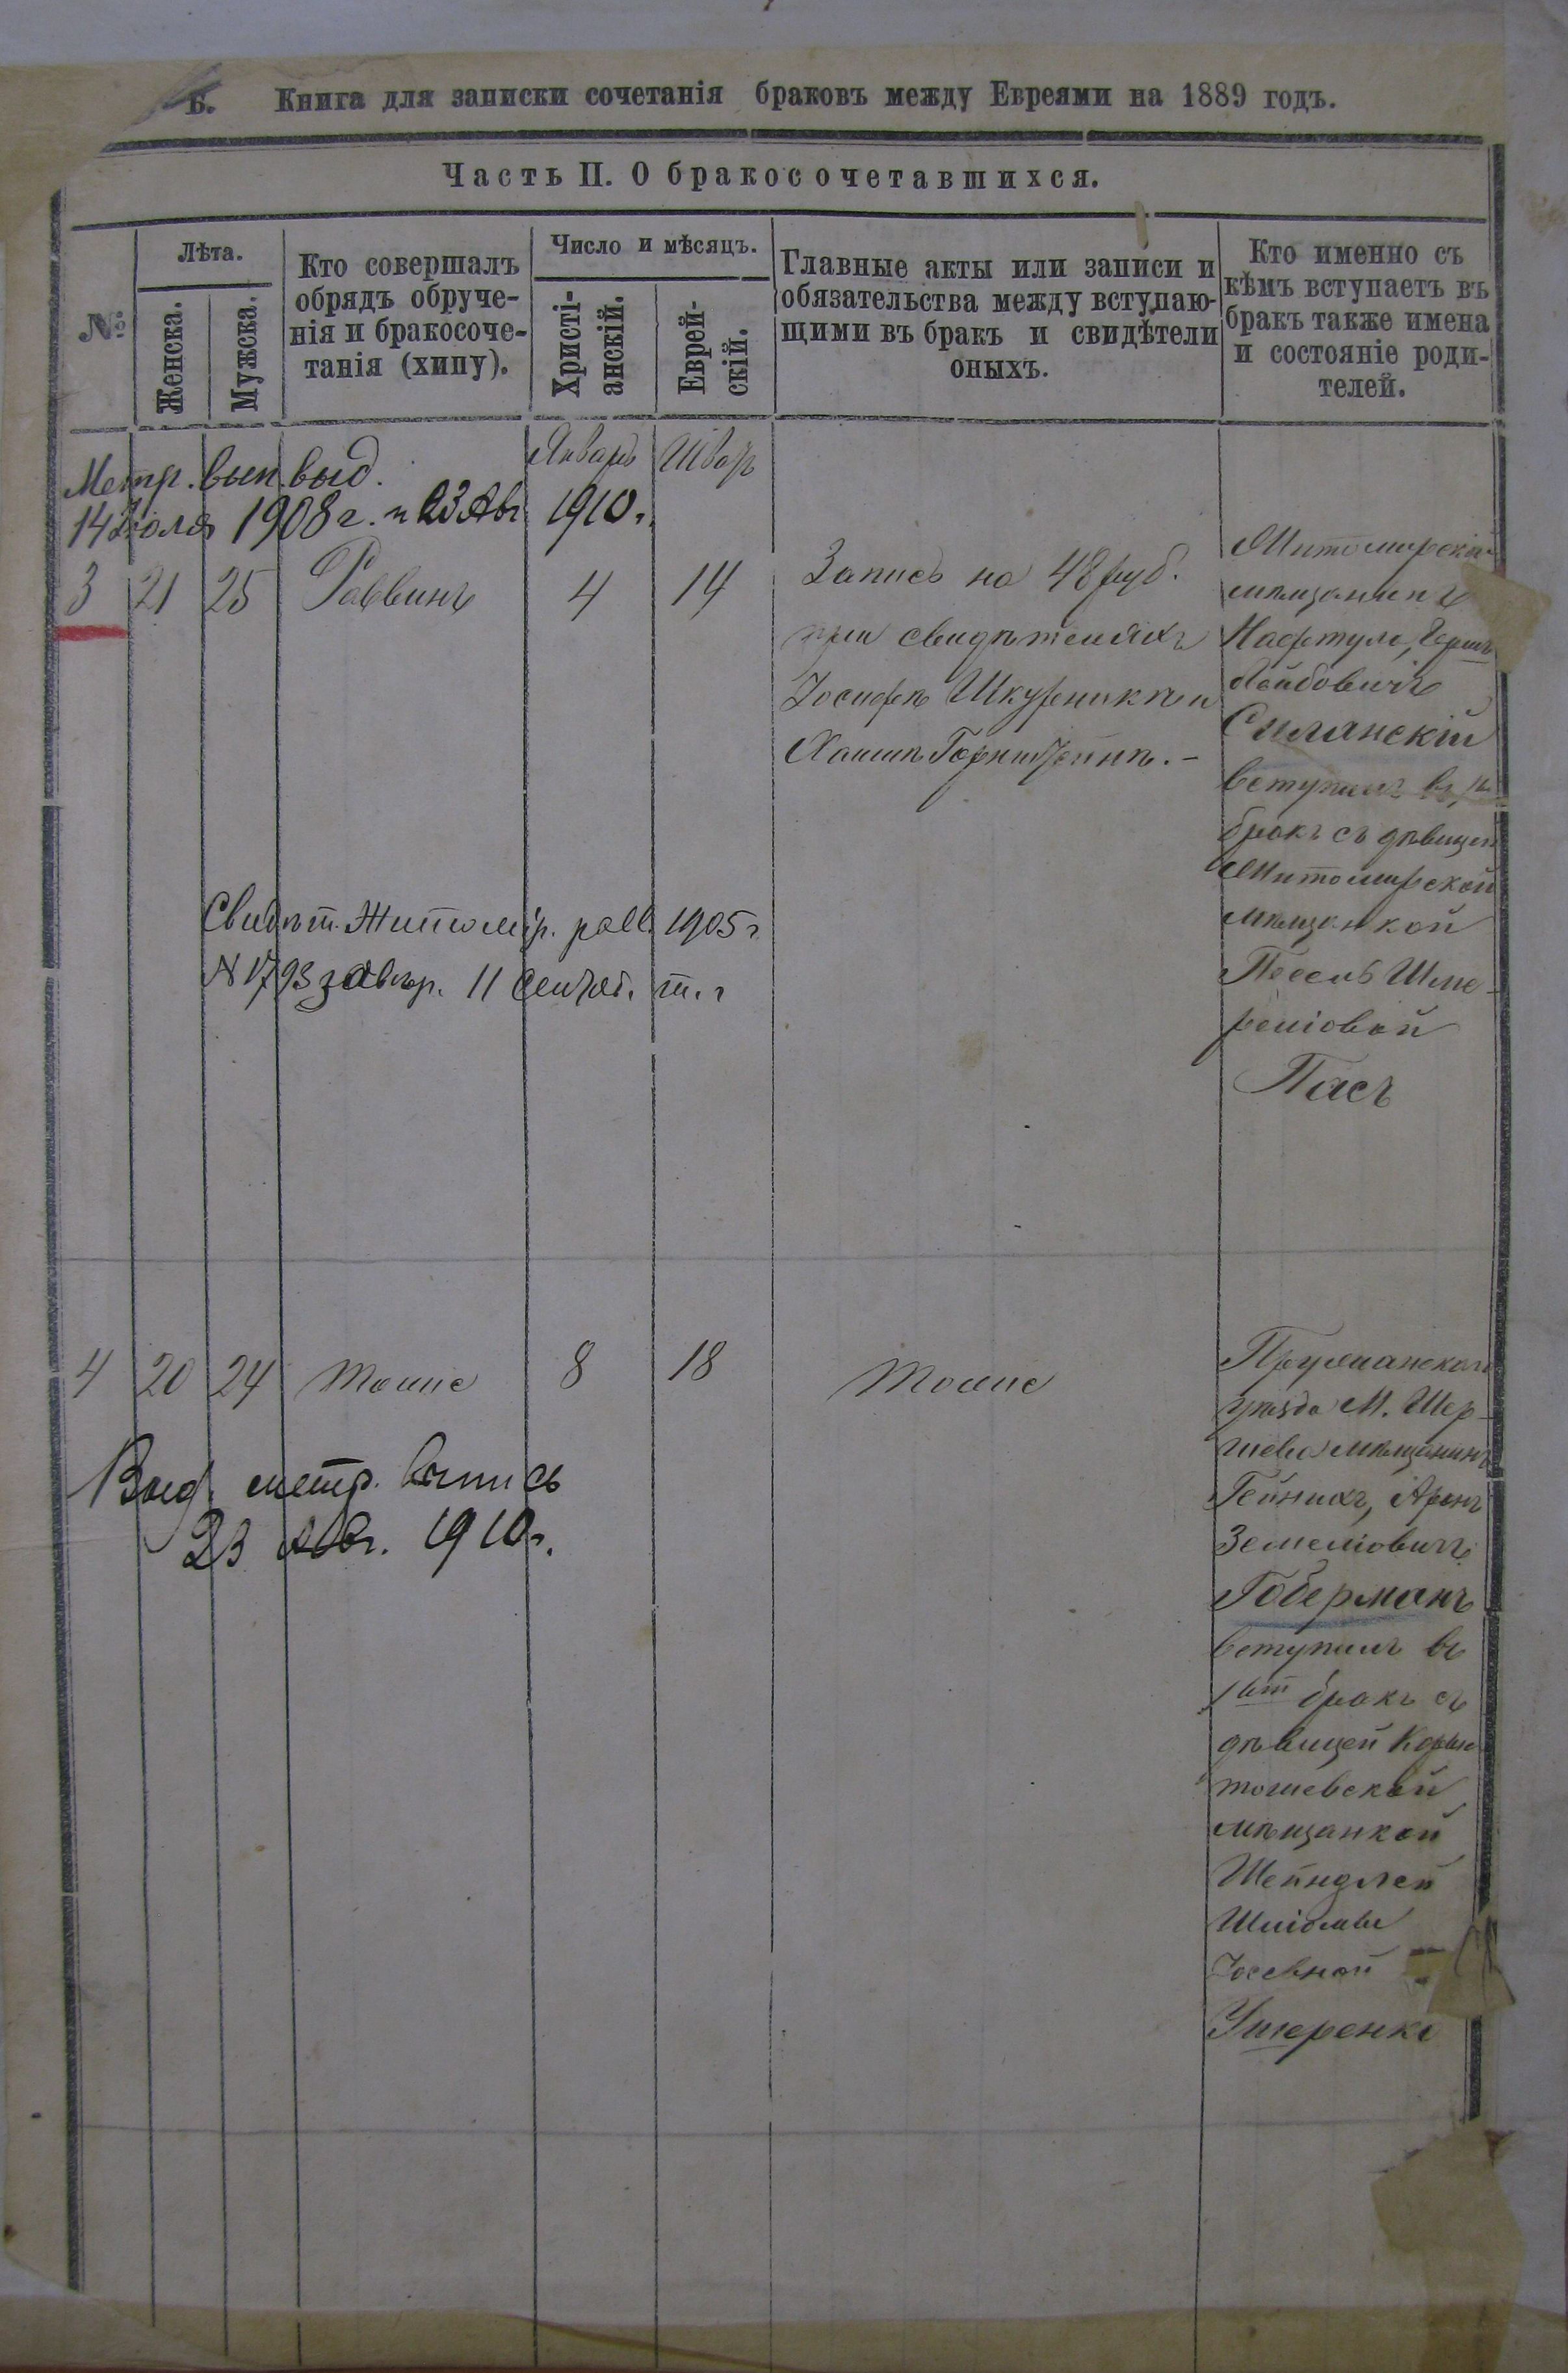 Б. Книга для записки сочетанія браковъ между Евреями на 1889 годъ.
Часть II. О бракосочетавшихся.
№
Лѣта.
Женска.
Мужска.
Кто совершалъ
обрядъ обруче-
нія и бракосоче-
танія (хипу).
Число и мѣсяцъ.
Христі-
анскій.
Еврей-
скій.
Главные акты или записи и
обязательства между вступаю-
щими въ бракъ и свидѣтели
оныхъ.
Кто именно съ
кѣмъ вступаетъ въ
бракъ также имена
и состояніе роди-
телей.
Январь Шватъ
Метр. вып. выд.
14 Іюля 1908 г. и 23 Авг. 1910 г.
3 21 25 Раввинъ 4 14
Запись на 48 руб.
при свидѣтеляхъ
Іосифѣ Шкурникѣ и
Хаимѣ Горнштейнѣ. –
Житомирскій
мѣщанинъ
Нафтула, Гершъ
Лейбовичъ
Смлянскій
вступилъ въ
бракъ съ дѣвицей
Житомирской
мѣщанкой
Песель Шме-
реліовой
Пасъ
Свидѣт. Житомір. равв. 1905 г.
N 1793 завѣр. 11 Сентяб. т. г.
4 20 24 тоже 8 18 тоже
Пружанскаго
уѣзда М. Шер-
шева мѣщанинъ
Гейнихъ, Аронъ
Земеліовичъ
Гоберманъ
вступилъ въ
1ый бракъ съ
дѣвицей
мѣщанкой
Шейндлей
Іосевной
Ушеренко
Выд. метр. выпись
23 Авг. 1910 г.